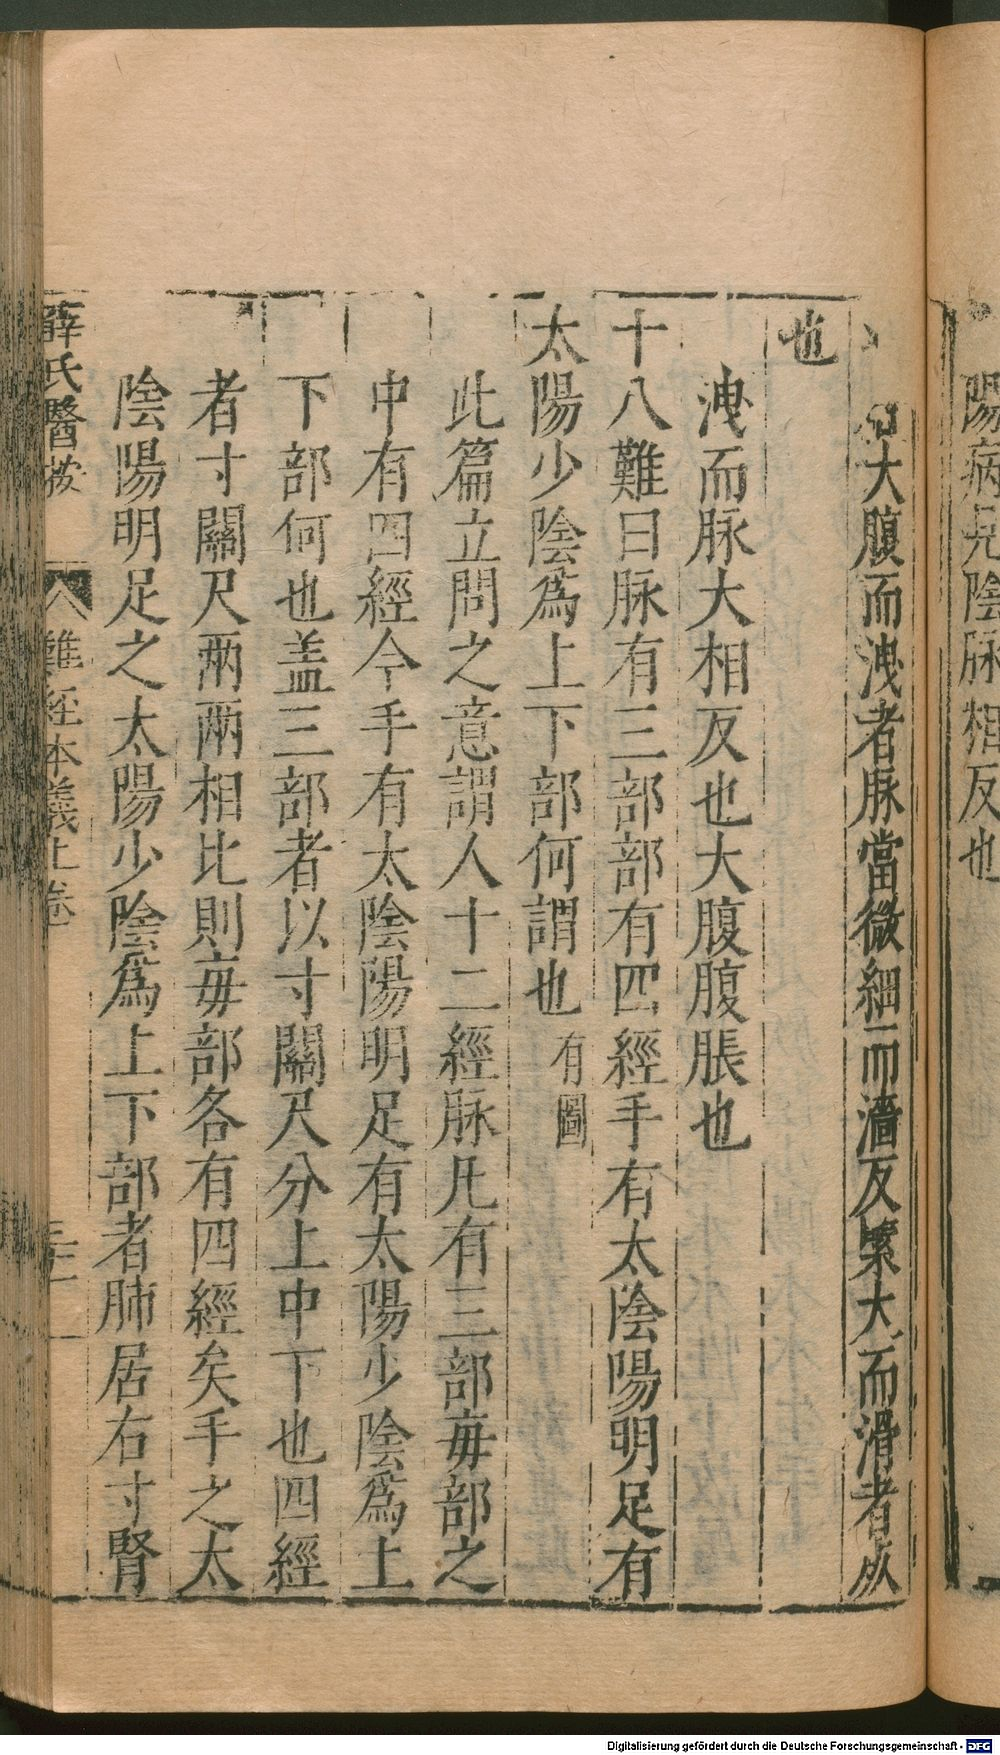 陽病見陰脉相反也
大腹而洩者脉當微細而濇反緊大而滑者死
也
洩而脉大相反也大腹腹脹也
十八難曰脉有三部部有四經手有太陰陽明足有
太陽少陰爲上下部何謂也有圖
此篇立問之意謂人十二經脉凡有三部毎部之
中有四經今手有太陰陽明足有太陽少陰爲上
下部何也盖三部者以寸關尺分上中下也四經
者寸關尺兩兩相比則毎部各有四經矣手之太
陰陽明足之太陽少陰爲上下部者肺居右寸腎
薛氏醫按 難經本義上卷
Digitalisierung gefördert durch die Deutsche Forschungsgemeinschaft - DFG